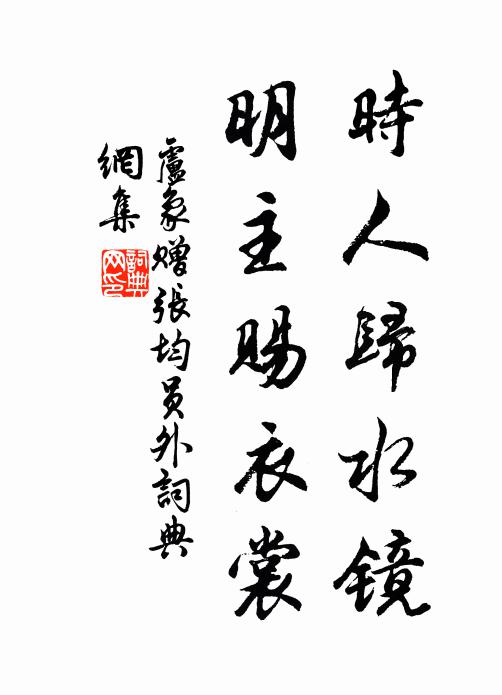 時人歸水镜
明主赐衣裳
盧象赠張均员外詞典
網集
詞典
网印